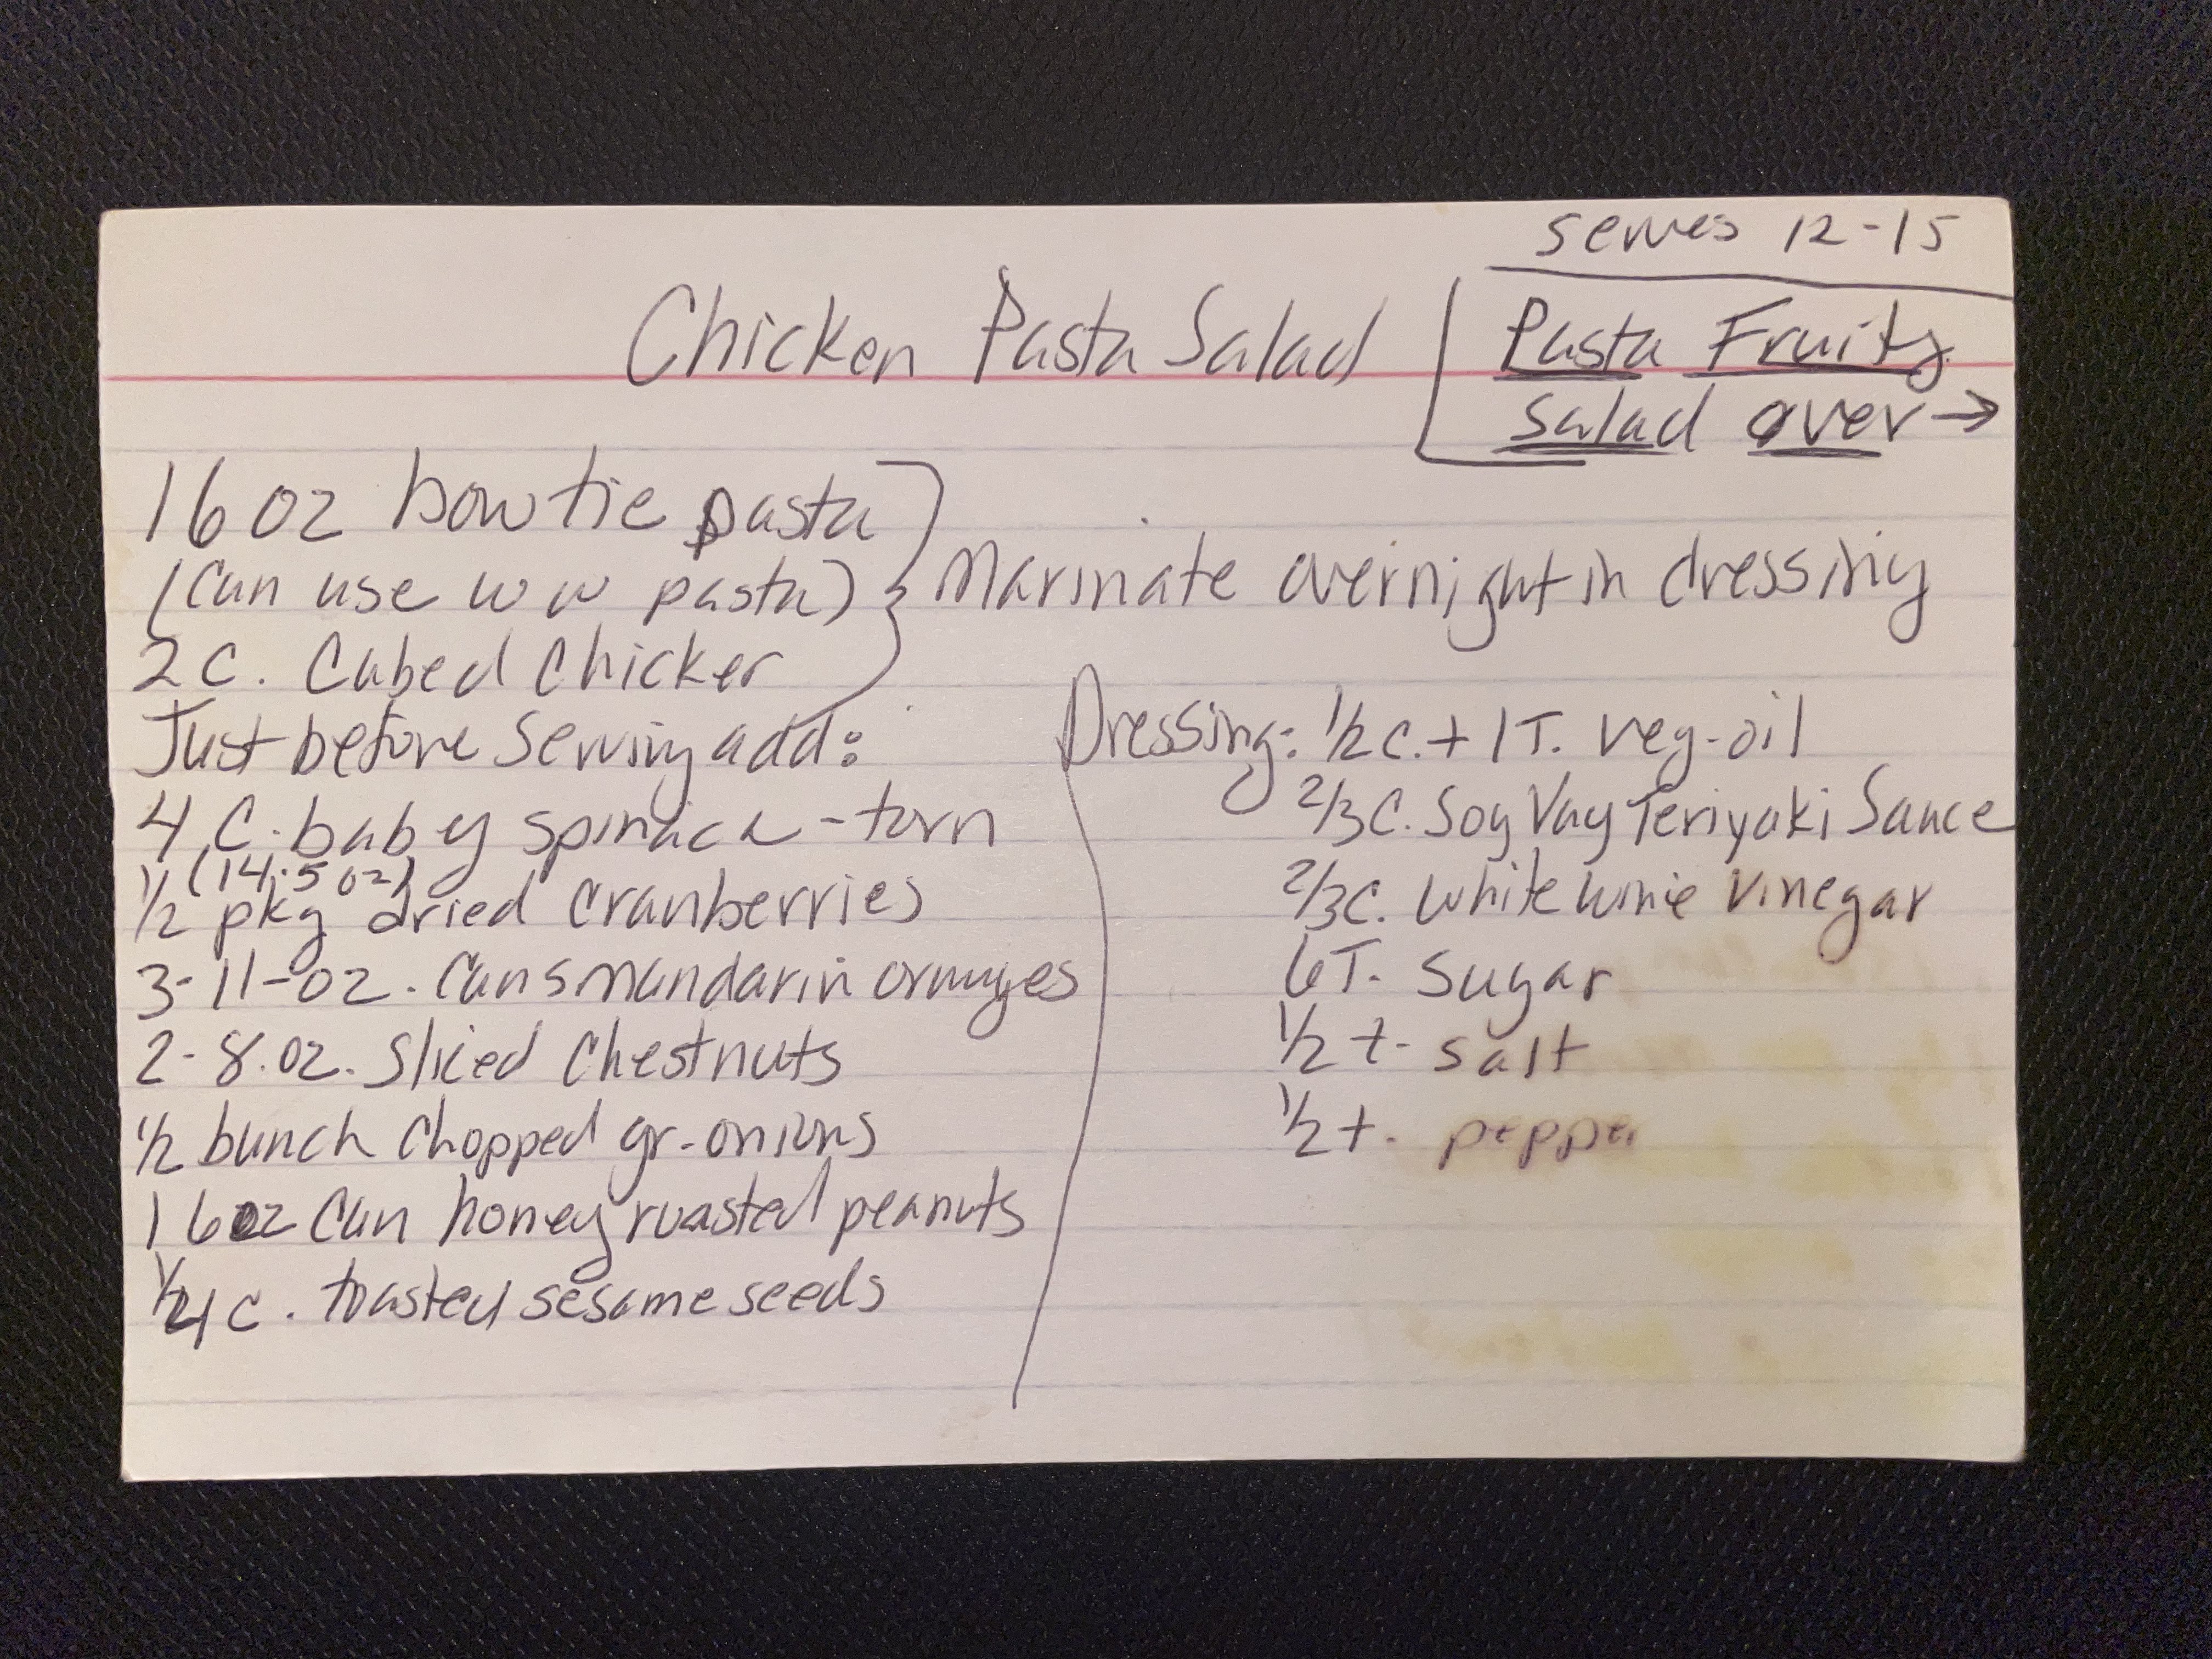 serves 12-15
Chicken Pasta Salad
Pasta Fruity
Salad over →
16 oz bowtie pasta
(Can use w w pasta)
2 C. Cubed Chicken
Marinate overnight in dressing
Just before serving add:
4 C. baby spinach - torn
(14.5 oz)
1/2 pkg dried cranberries
3-11-oz. Cans mandarin oranges
2-8.oz. Sliced Chestnuts
1/2 bunch Chopped gr. onions
1 6oz Can honey roasted peanuts
1/4 C. toasted sesame seeds
Dressing: 1/2 C. + 1 T. veg. oil
2/3 C. Soy Vay Teriyaki Sauce
2/3 C. White Wine Vinegar
6 T. Sugar
1/2 t. salt
1/2 t. pepper